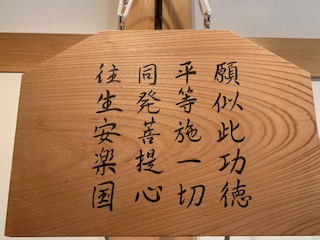 願似此功徳
平等施一切
同発菩提心
往生安楽国